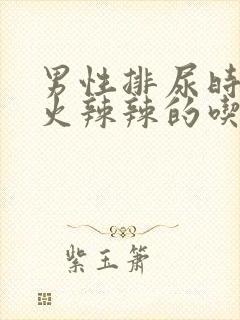 男性排尿时
火辣辣的喫
紫玉箫